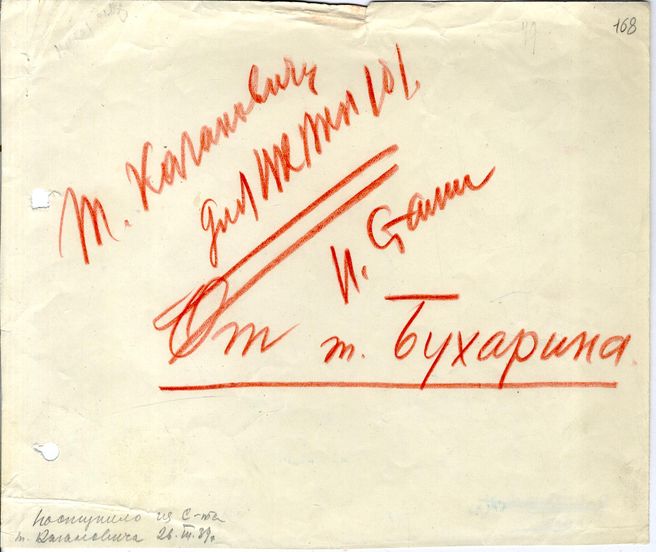 168
т. Кагановичу
И. Сталин
От т. Бухарина.
поступило из С-та
т. Кагановича 26.III.37г.